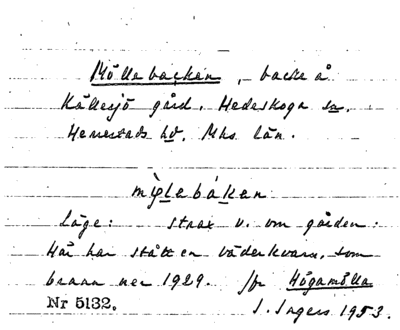 Möllebacken, backe å
Källesjö gård. Hedeskoga sn.
Herrestads hd. Mhs län.
mø̀lebákan
Läge: strax v. om gården.
Här har stått en väderkvarn, som
brann ner 1929. jfr Högamölla
Nr 5132.
I. Ingers 1953.